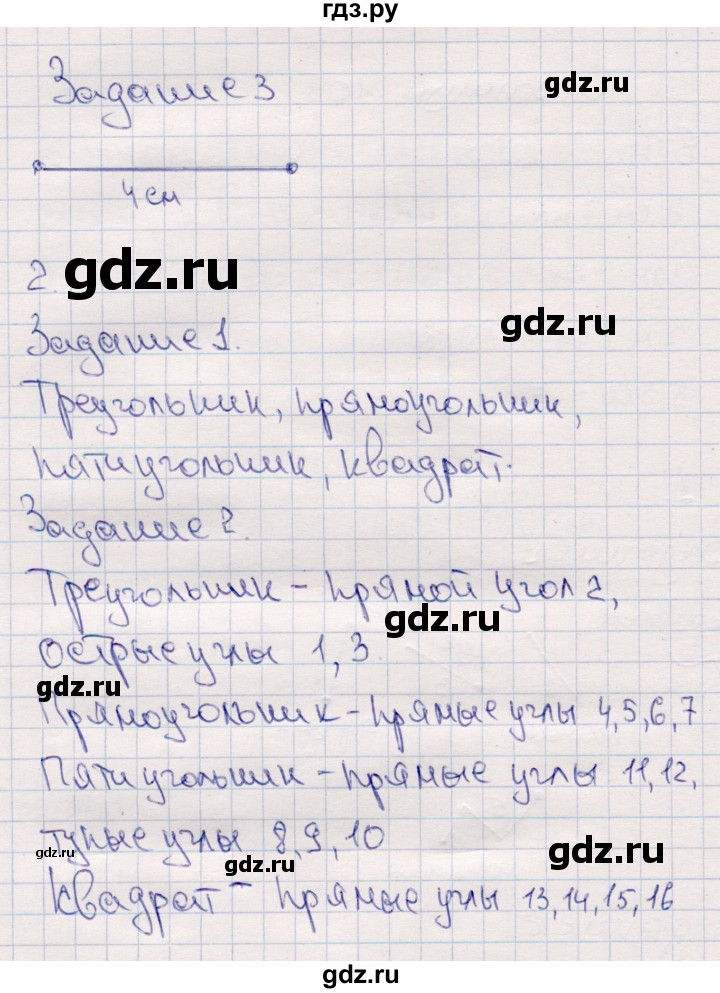 гдз.ру
Задание 3
gdz.ru
4 см
2. gdz.ru
gdz.ru
Задание 1.
Треугольник, прямоугольник,
пятиугольник, квадрат.
Задание 2.
Треугольник – прямой угол 2,
gdz.ru
острые углы 1, 3.
gdz.ru
Прямоугольник – прямые углы 4, 5, 6, 7
Пятиугольник – прямые углы 11, 12,
тупые углы 8, 9, 10
gdz.ru
gdz.ru
gdz.ru
Квадрат – прямые углы 13, 14, 15, 16
gdz.ru